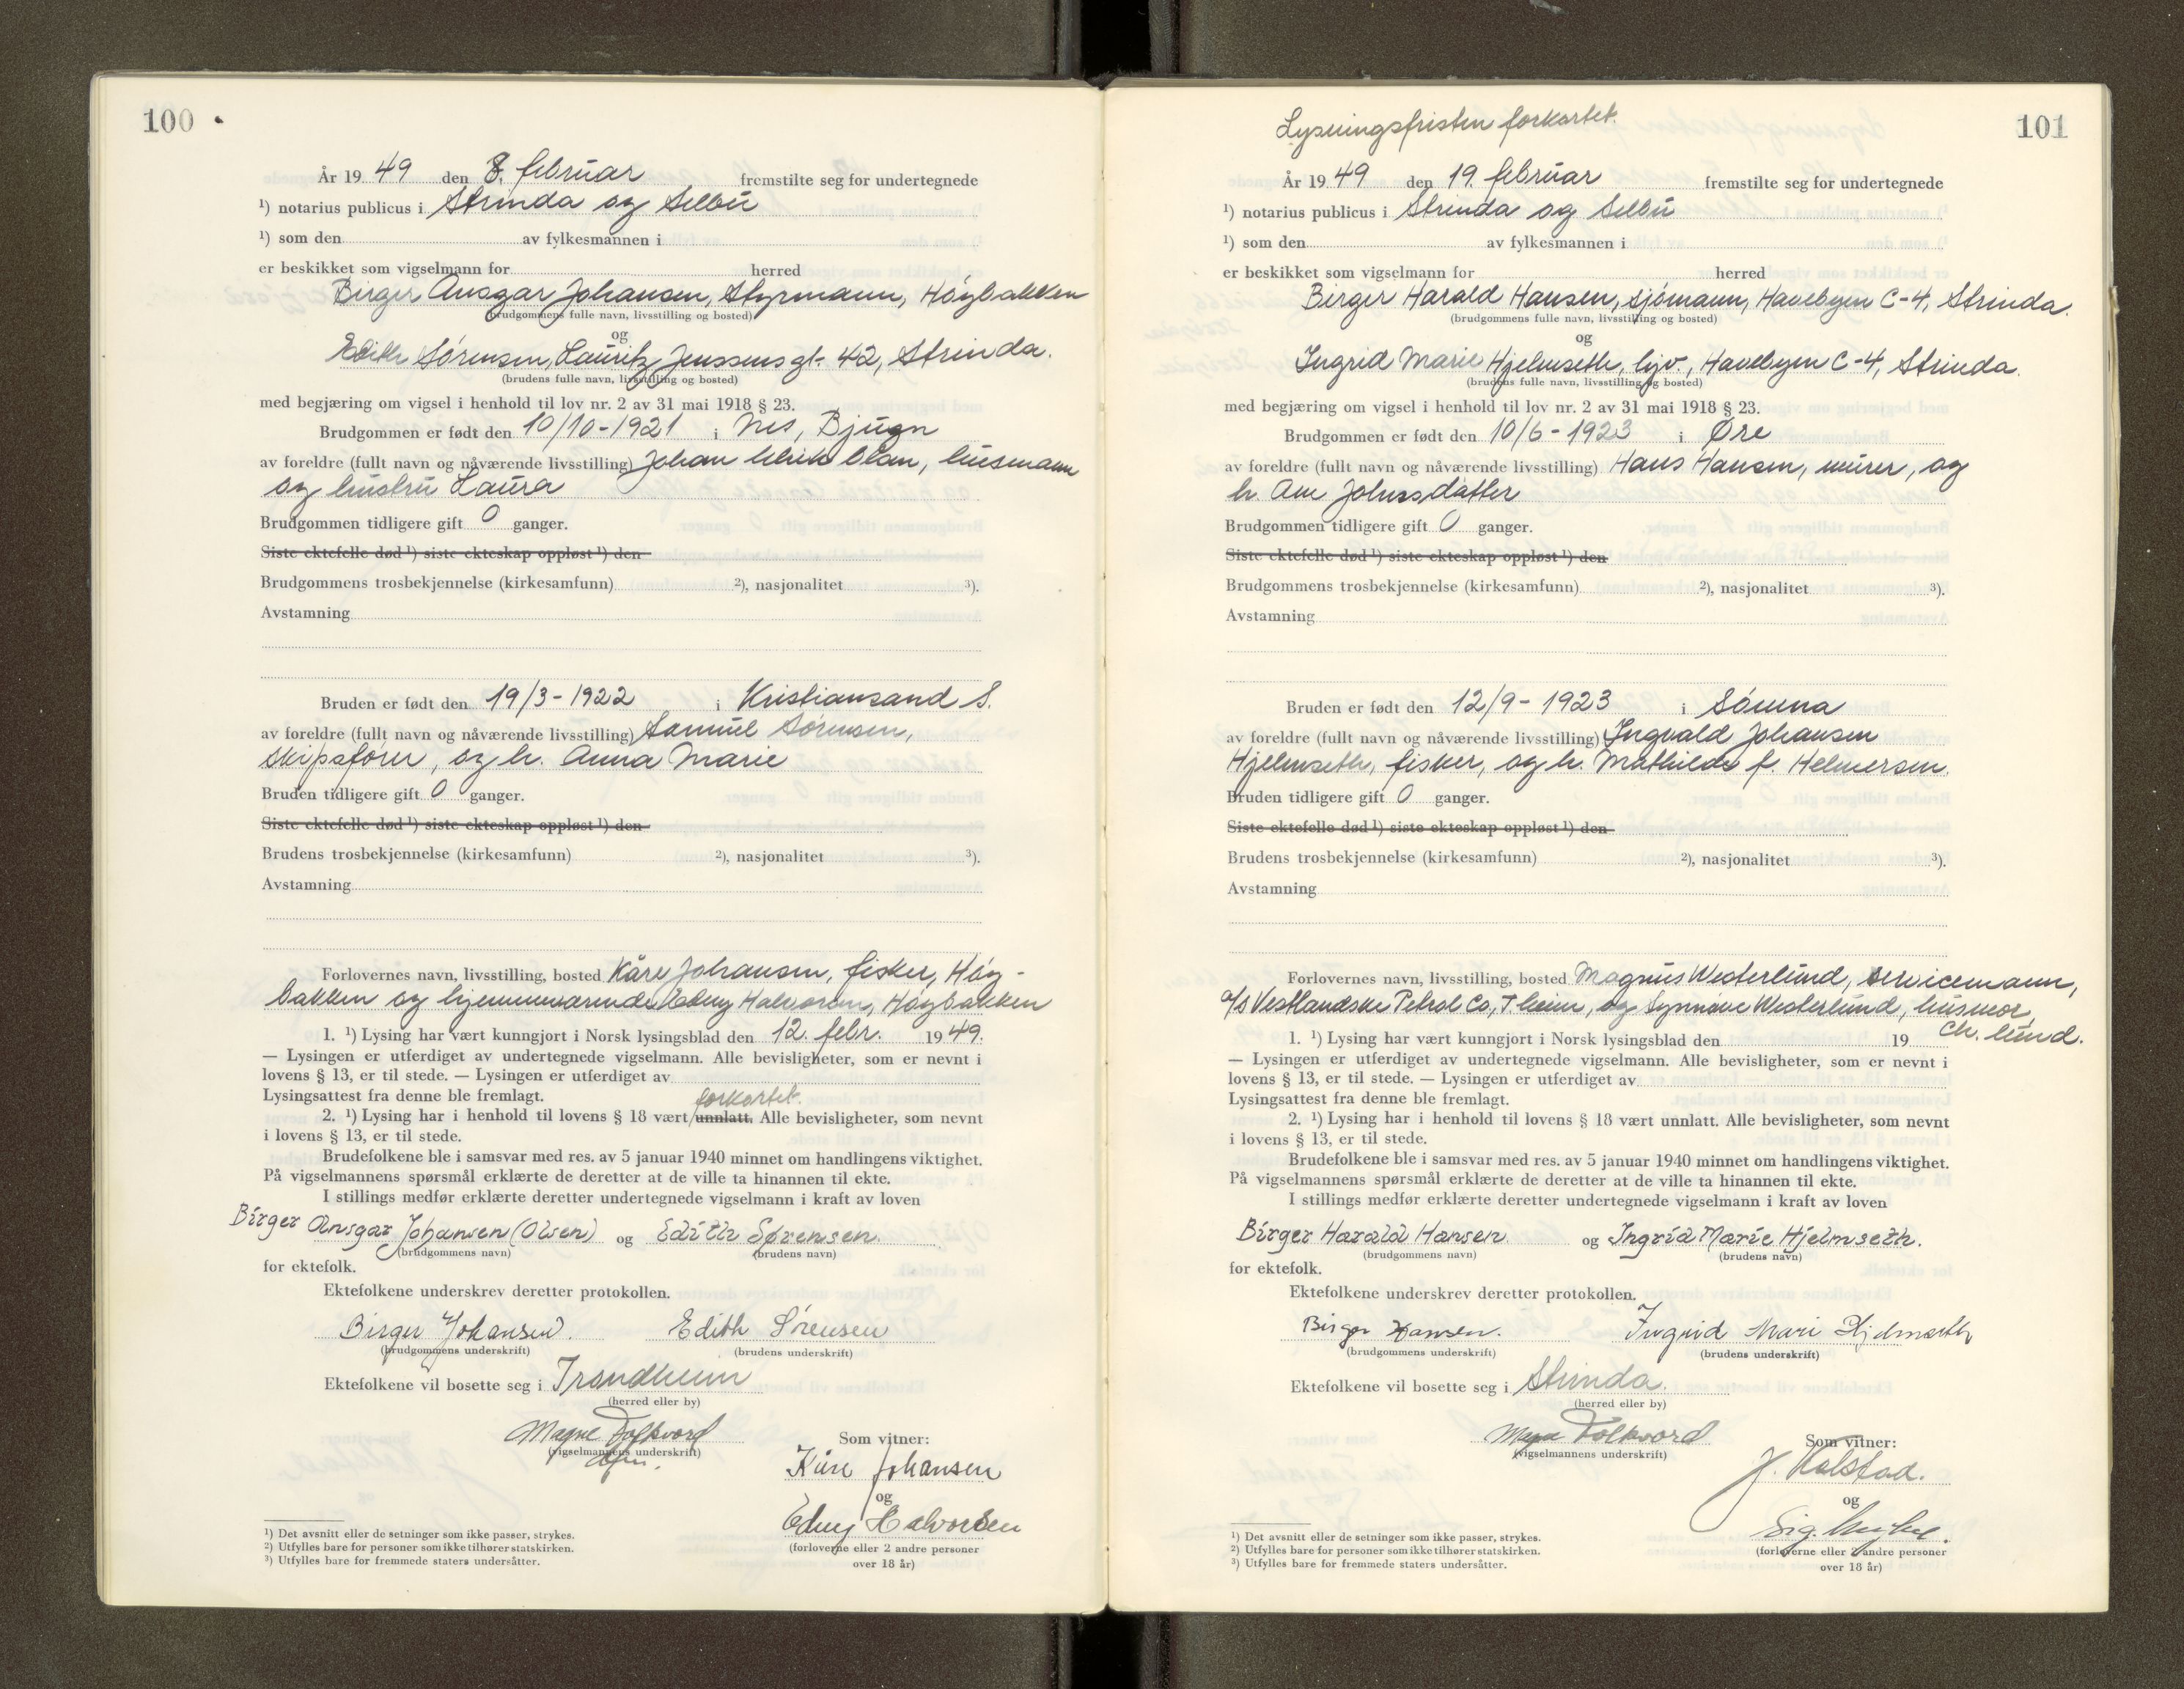 100
År 1949 den 8. februar fremstilte seg for undertegnede
¹) notarius publicus i Strinda og Selbu
¹) som den av fylkesmannen i
er beskikket som vigselmann for herred
Birger Ansgar Johansen, Styrmann, Høybakken
(brudgommens fulle navn, livsstilling og bosted)
og
Edith Sørensen, Lauritz Jenssens gt. 42, Strinda.
(brudens fulle navn, livsstilling og bosted)
med begjæring om vigsel i henhold til lov nr. 2 av 31 mai 1918 § 23.
Brudgommen er født den 10/10-1921 i Nes, Bjugn
av foreldre (fullt navn og nåværende livsstilling) Johan Ulrik Olsen, husmann
og hustru Laura
Brudgommen tidligere gift 0 ganger.
Siste ektefelle død ¹) siste ekteskap oppløst ¹) den
Brudgommens trosbekjennelse (kirkesamfunn) ²), nasjonalitet ³).
Avstamning
Bruden er født den 19/3-1922 i Kristiansand S.
av foreldre (fullt navn og nåværende livsstilling) Samuel Sørensen,
skipsfører, og h. Anna Marie
Bruden tidligere gift 0 ganger.
Siste ektefelle død ¹) siste ekteskap oppløst ¹) den
Brudens trosbekjennelse (kirkesamfunn) ²), nasjonalitet ³).
Avstamning
Forlovernes navn, livsstilling, bosted Kåre Johansen, fisker, Høy-
bakken og hjemmeværende Edny Halvorsen, Høybakken
1. ¹) Lysing har vært kunngjort i Norsk lysingsblad den 12. febr. 1949.
— Lysingen er utferdiget av undertegnede vigselmann. Alle bevisligheter, som er nevnt i
lovens § 13, er til stede. — Lysingen er utferdiget av
Lysingsattest fra denne ble fremlagt. forkortet.
2. ¹) Lysing har i henhold til lovens § 18 vært unnlatt. Alle bevisligheter, som nevnt
i lovens § 13, er til stede.
Brudefolkene ble i samsvar med res. av 5 januar 1940 minnet om handlingens viktighet.
På vigselmannens spørsmål erklærte de deretter at de ville ta hinannen til ekte.
I stillings medfør erklærte deretter undertegnede vigselmann i kraft av loven
Birger Ansgar Johansen (Olsen) og Edith Sørensen.
(brudgommens navn) (brudens navn)
for ektefolk.
Ektefolkene underskrev deretter protokollen.
Birger Johansen. Edith Sørensen
(brudgommens underskrift) (brudens underskrift)
Ektefolkene vil bosette seg i Trondheim
(herred eller by)
Magne Folkvord
(vigselmannens underskrift)
Som vitner:
Kåre Johansen
og
Edny Halvorsen
(forloverne eller 2 andre personer
over 18 år)
¹) Det avsnitt eller de setninger som ikke passer, strykes.
²) Utfylles bare for personer som ikke tilhører statskirken.
³) Utfylles bare for fremmede staters undersåtter.
101
Lysningsfristen forkortet.
År 1949 den 19. februar fremstilte seg for undertegnede
¹) notarius publicus i Strinda og Selbu
¹) som den av fylkesmannen i
er beskikket som vigselmann for herred
Birger Harald Hansen, sjømann, Havebyen C-4, Strinda.
(brudgommens fulle navn, livsstilling og bosted)
og
Ingrid Marie Hjelmseth, hjv., Havebyen C-4, Strinda.
(brudens fulle navn, livsstilling og bosted)
med begjæring om vigsel i henhold til lov nr. 2 av 31 mai 1918 § 23.
Brudgommen er født den 10/6-1923 i Øre
av foreldre (fullt navn og nåværende livsstilling) Hans Hansen, murer, og
h. Ane Johnsdatter
Brudgommen tidligere gift 0 ganger.
Siste ektefelle død ¹) siste ekteskap oppløst ¹) den
Brudgommens trosbekjennelse (kirkesamfunn) ²), nasjonalitet ³).
Avstamning
Bruden er født den 12/9-1923 i Sømna
av foreldre (fullt navn og nåværende livsstilling) Ingvald Johansen
Hjelmseth, fisker, og h. Mathilde f. Helmersen.
Bruden tidligere gift 0 ganger.
Siste ektefelle død ¹) siste ekteskap oppløst ¹) den
Brudens trosbekjennelse (kirkesamfunn) ²), nasjonalitet ³).
Avstamning
Forlovernes navn, livsstilling, bosted Magnus Westerlund, servicemann,
a/s Vestlandske Petrol Co, T.heim, og Synnøve Westerlund, husmor,
Ch. lund.
1. ¹) Lysing har vært kunngjort i Norsk lysingsblad den 19
— Lysingen er utferdiget av undertegnede vigselmann. Alle bevisligheter, som er nevnt i
lovens § 13, er til stede. — Lysingen er utferdiget av
Lysingsattest fra denne ble fremlagt.
2. ¹) Lysing har i henhold til lovens § 18 vært unnlatt. Alle bevisligheter, som nevnt
i lovens § 13, er til stede.
Brudefolkene ble i samsvar med res. av 5 januar 1940 minnet om handlingens viktighet.
På vigselmannens spørsmål erklærte de deretter at de ville ta hinannen til ekte.
I stillings medfør erklærte deretter undertegnede vigselmann i kraft av loven
Birger Harald Hansen og Ingrid Marie Hjelmseth.
(brudgommens navn) (brudens navn)
for ektefolk.
Ektefolkene underskrev deretter protokollen.
Birger Hansen. Ingrid Mari Hjelmseth
(brudgommens underskrift) (brudens underskrift)
Ektefolkene vil bosette seg i Strinda.
(herred eller by)
Magne Folkvord
(vigselmannens underskrift)
Som vitner:
J. Kolstad.
og
Sig.
(forloverne eller 2 andre personer
over 18 år)
¹) Det avsnitt eller de setninger som ikke passer, strykes.
²) Utfylles bare for personer som ikke tilhører statskirken.
³) Utfylles bare for fremmede staters undersåtter.